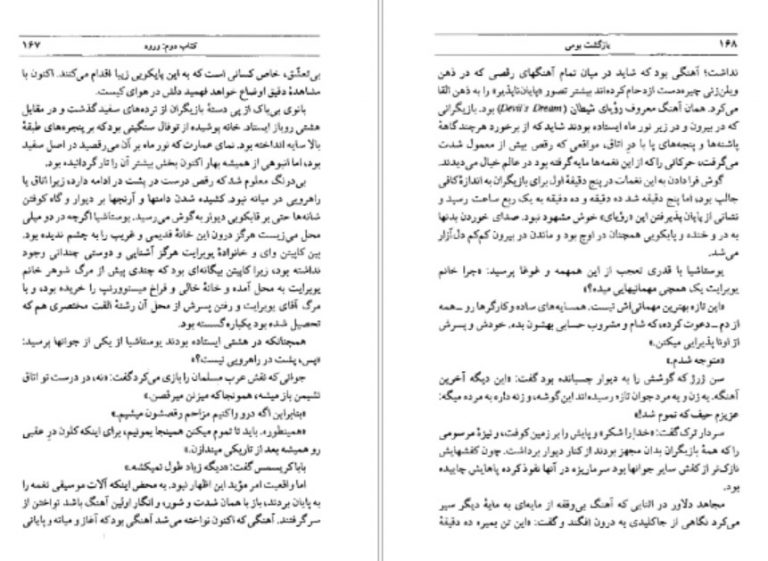 کتاب دوم: ورود ۱۶۷
بی‌تعلّق، خاص کسانی است که به این پایکوبی زیبا اقدام می‌کنند. اکنون با
مشاهدهٔ دقیق اوضاع خواهد فهمید دلش در هوای کیست.
بانوی بی‌باک از پی دستهٔ بازیگران از نرده‌های سفید گذشت و در مقابل
هشتی روباز ایستاد. خانه پوشیده از توفال سنگینی بود که بر پنجره‌های طبقهٔ
بالا سایه انداخته بود. نمای عمارت که نور ماه بر آن می‌رقصید در اصل سفید
بود، اما انبوهی از همیشه بهار اکنون بخش بیشتر آن را تار گردانیده بود.
بی‌درنگ معلوم شد که رقص درست در پشت در ادامه دارد، زیرا اتاق یا
راهرویی در میانه نبود. کشیده شدن دامنها و آرنجها بر دیوار و گاه کوفتن
شانه‌ها حتی بر قابکوبی دیوار به گوش می‌رسید. یوستاشیا اگرچه در دو میلی
محل می‌زیست هرگز درون این خانهٔ قدیمی و غریب را به چشم ندیده بود.
بین کاپیتن وای و خانوادهٔ یوبرایت هرگز آشنایی و دوستی چندانی وجود
نداشته بود، زیرا کاپیتن بیگانه‌ای بود که چندی پیش از مرگ شوهر خانم
یوبرایت به محل آمده و خانهٔ خالی و فراخ میستوورنپ را خریده بود، و با
مرگ آقای یوبرایت و رفتن پسرش از محل آن رشتهٔ الفت مختصری هم که
تحصیل شده بود یکباره گسسته بود.
همچنانکه در هشتی ایستاده بودند یوستاشیا از یکی از جوانها پرسید:
«پس، پشت در راهرویی نیست؟»
جوانی که نقش عرب مسلمان را بازی می‌کرد گفت: «نه، در درست تو اتاق
نشیمن باز میشه، همونجا که میزنن میرقصن.»
«بنابراین اگه درو واکنیم مزاحم رقصشون میشیم.»
«همینطور. باید تا تموم میکنن همینجا بمونیم، برای اینکه کلون درِ عقبی
رو همیشه بعد از تاریکی میندازن.»
باباکریسمس گفت: «دیگه زیاد طول نمیکشه.»
اما واقعیت امر مؤید این اظهار نبود. به محض اینکه آلات موسیقی نغمه را
به پایان بردند، باز با همان شدت و شور، و انگار اولین آهنگ باشد نواختن از
سر گرفتند. آهنگی که اکنون نواخته می‌شد آهنگی بود که آغاز و میانه و پایانی
۱۶۸ بازگشت بومی
نداشت؛ آهنگی بود که شاید در میان تمام آهنگهای رقصی که در ذهن
ویلن‌زنی چیره‌دست ازدحام کرده‌اند بیشتر تصور «پایان‌ناپذیر» را به ذهن القا
می‌کرد. همان آهنگ معروف رؤیای شیطان (Devil's Dream) بود. بازیگرانی
که در بیرون و در زیر نور ماه ایستاده بودند شاید که از برخورد هرچندگاهۀ
پاشنه‌ها و پنجه‌های پا با در اتاق، مواقعی که رقص بیش از معمول شدت
می‌گرفت، حرکاتی را که از این نغمه‌ها مایه گرفته بود در عالم خیال می‌دیدند.
گوش فرا دادن به این نغمات در پنج دقیقهٔ اول برای بازیگران به اندازهٔ کافی
جالب بود، اما پنج دقیقه شد ده دقیقه و ده دقیقه به یک ربع ساعت رسید و
نشانی از پایان پذیرفتن این «رؤیای» خوش مشهود نبود. صدای خوردن بدنها
به در و خنده و پایکوبی همچنان در اوج بود و ماندن در بیرون کم‌کم دل‌آزار
می‌شد.
یوستاشیا با قدری تعجب از این همهمه و غوغا پرسید: «چرا خانم
یوبرایت یک همچی مهمانیهایی میده؟»
«این تازه بهترین مهمانی‌اش نیست. همسایه‌های ساده و کارگرها رو ــ همه
از دم ــ دعوت کرده، که شام و مشروب حسابی بهشون بده. خودش و پسرش
از اونا پذیرایی میکنن.»
«متوجه شدم.»
سن ژرژ که گوشش را به دیوار چسبانده بود گفت: «این دیگه آخرین
آهنگه. یه زن و یه مرد جوان تازه رسیده‌اند این گوشه، و زنه داره به مرده میگه:
عزیزم حیف که تموم شد!»
سردار ترک گفت: «خدا را شکر» و پایش را بر زمین کوفت، و نیزهٔ مرسومی
را که همهٔ بازیگران بدان مجهز بودند از کنار دیوار برداشت. چون کفشهایش
نازک‌تر از کفش سایر جوانها بود سرماریزه در آنها نفوذ کرده پاهایش چاییده
بود.
مجاهد دلاور در اثنایی که آهنگ بی‌وقفه از مایه‌ای به مایهٔ دیگر سیر
می‌کرد نگاهی از جاکلیدی به درون افگند و گفت: «این تن بمیره ده دقیقهٔ